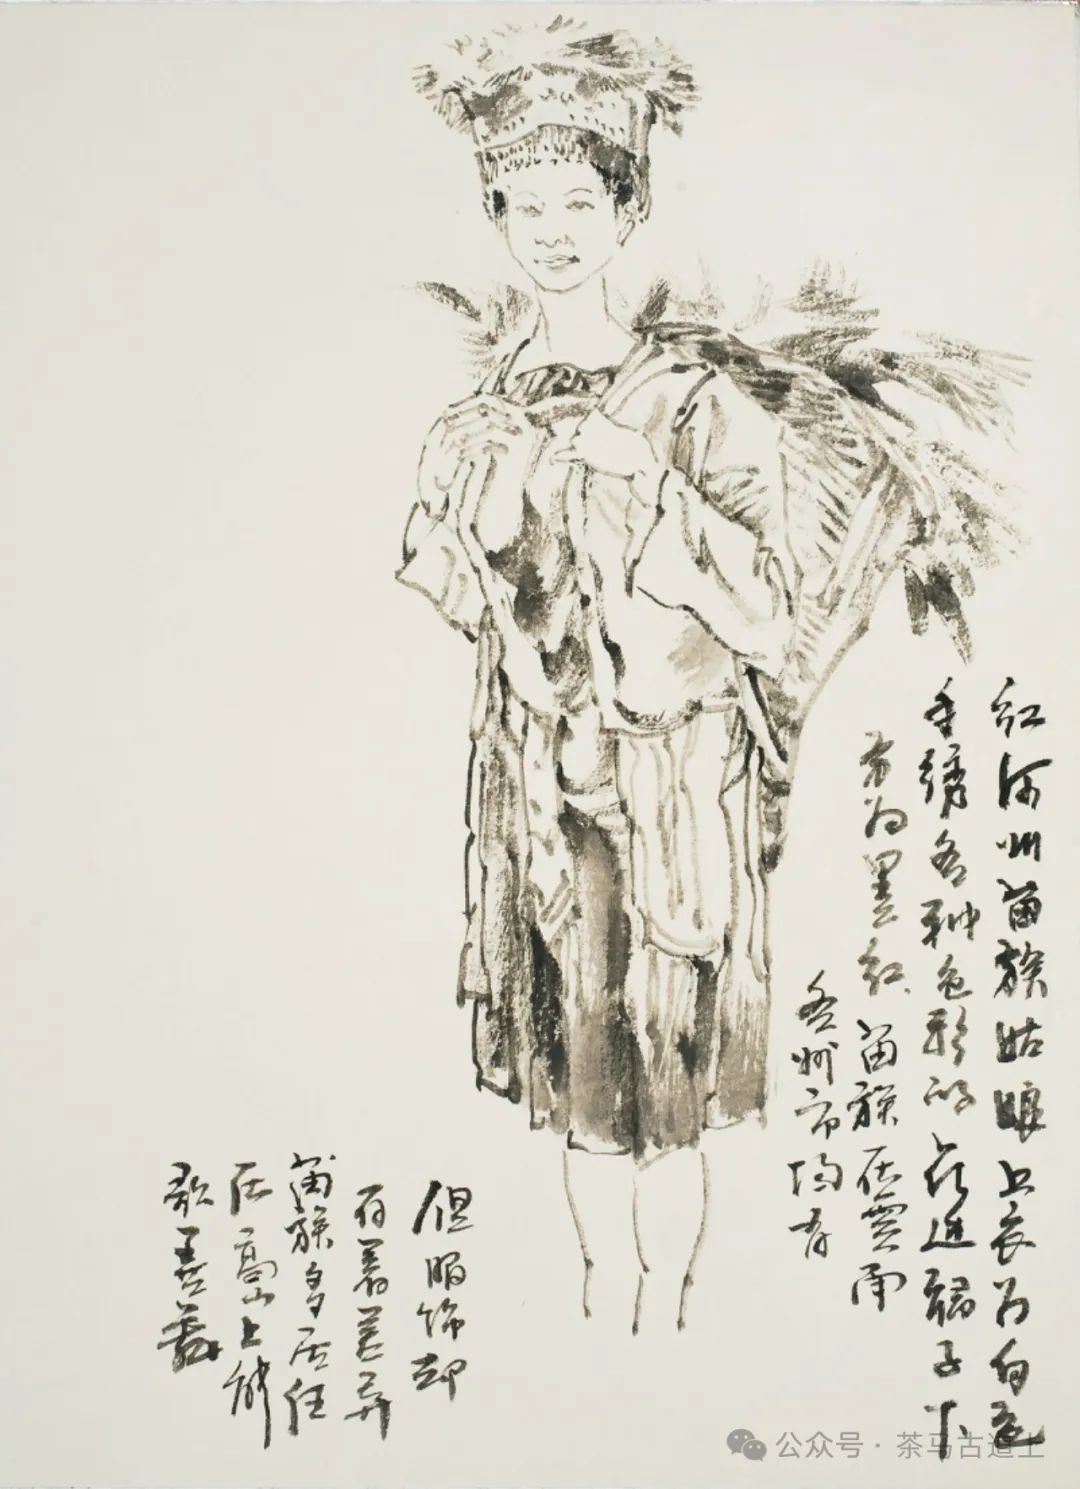 红河州苗族姑娘上衣为白色
手绣各种色彩的花边裙子下
方为黑红、苗族在雲南
各州市均有
但服饰却
有着差异
苗族多居住
在高山上能
歌善舞
公众号·茶马古道上